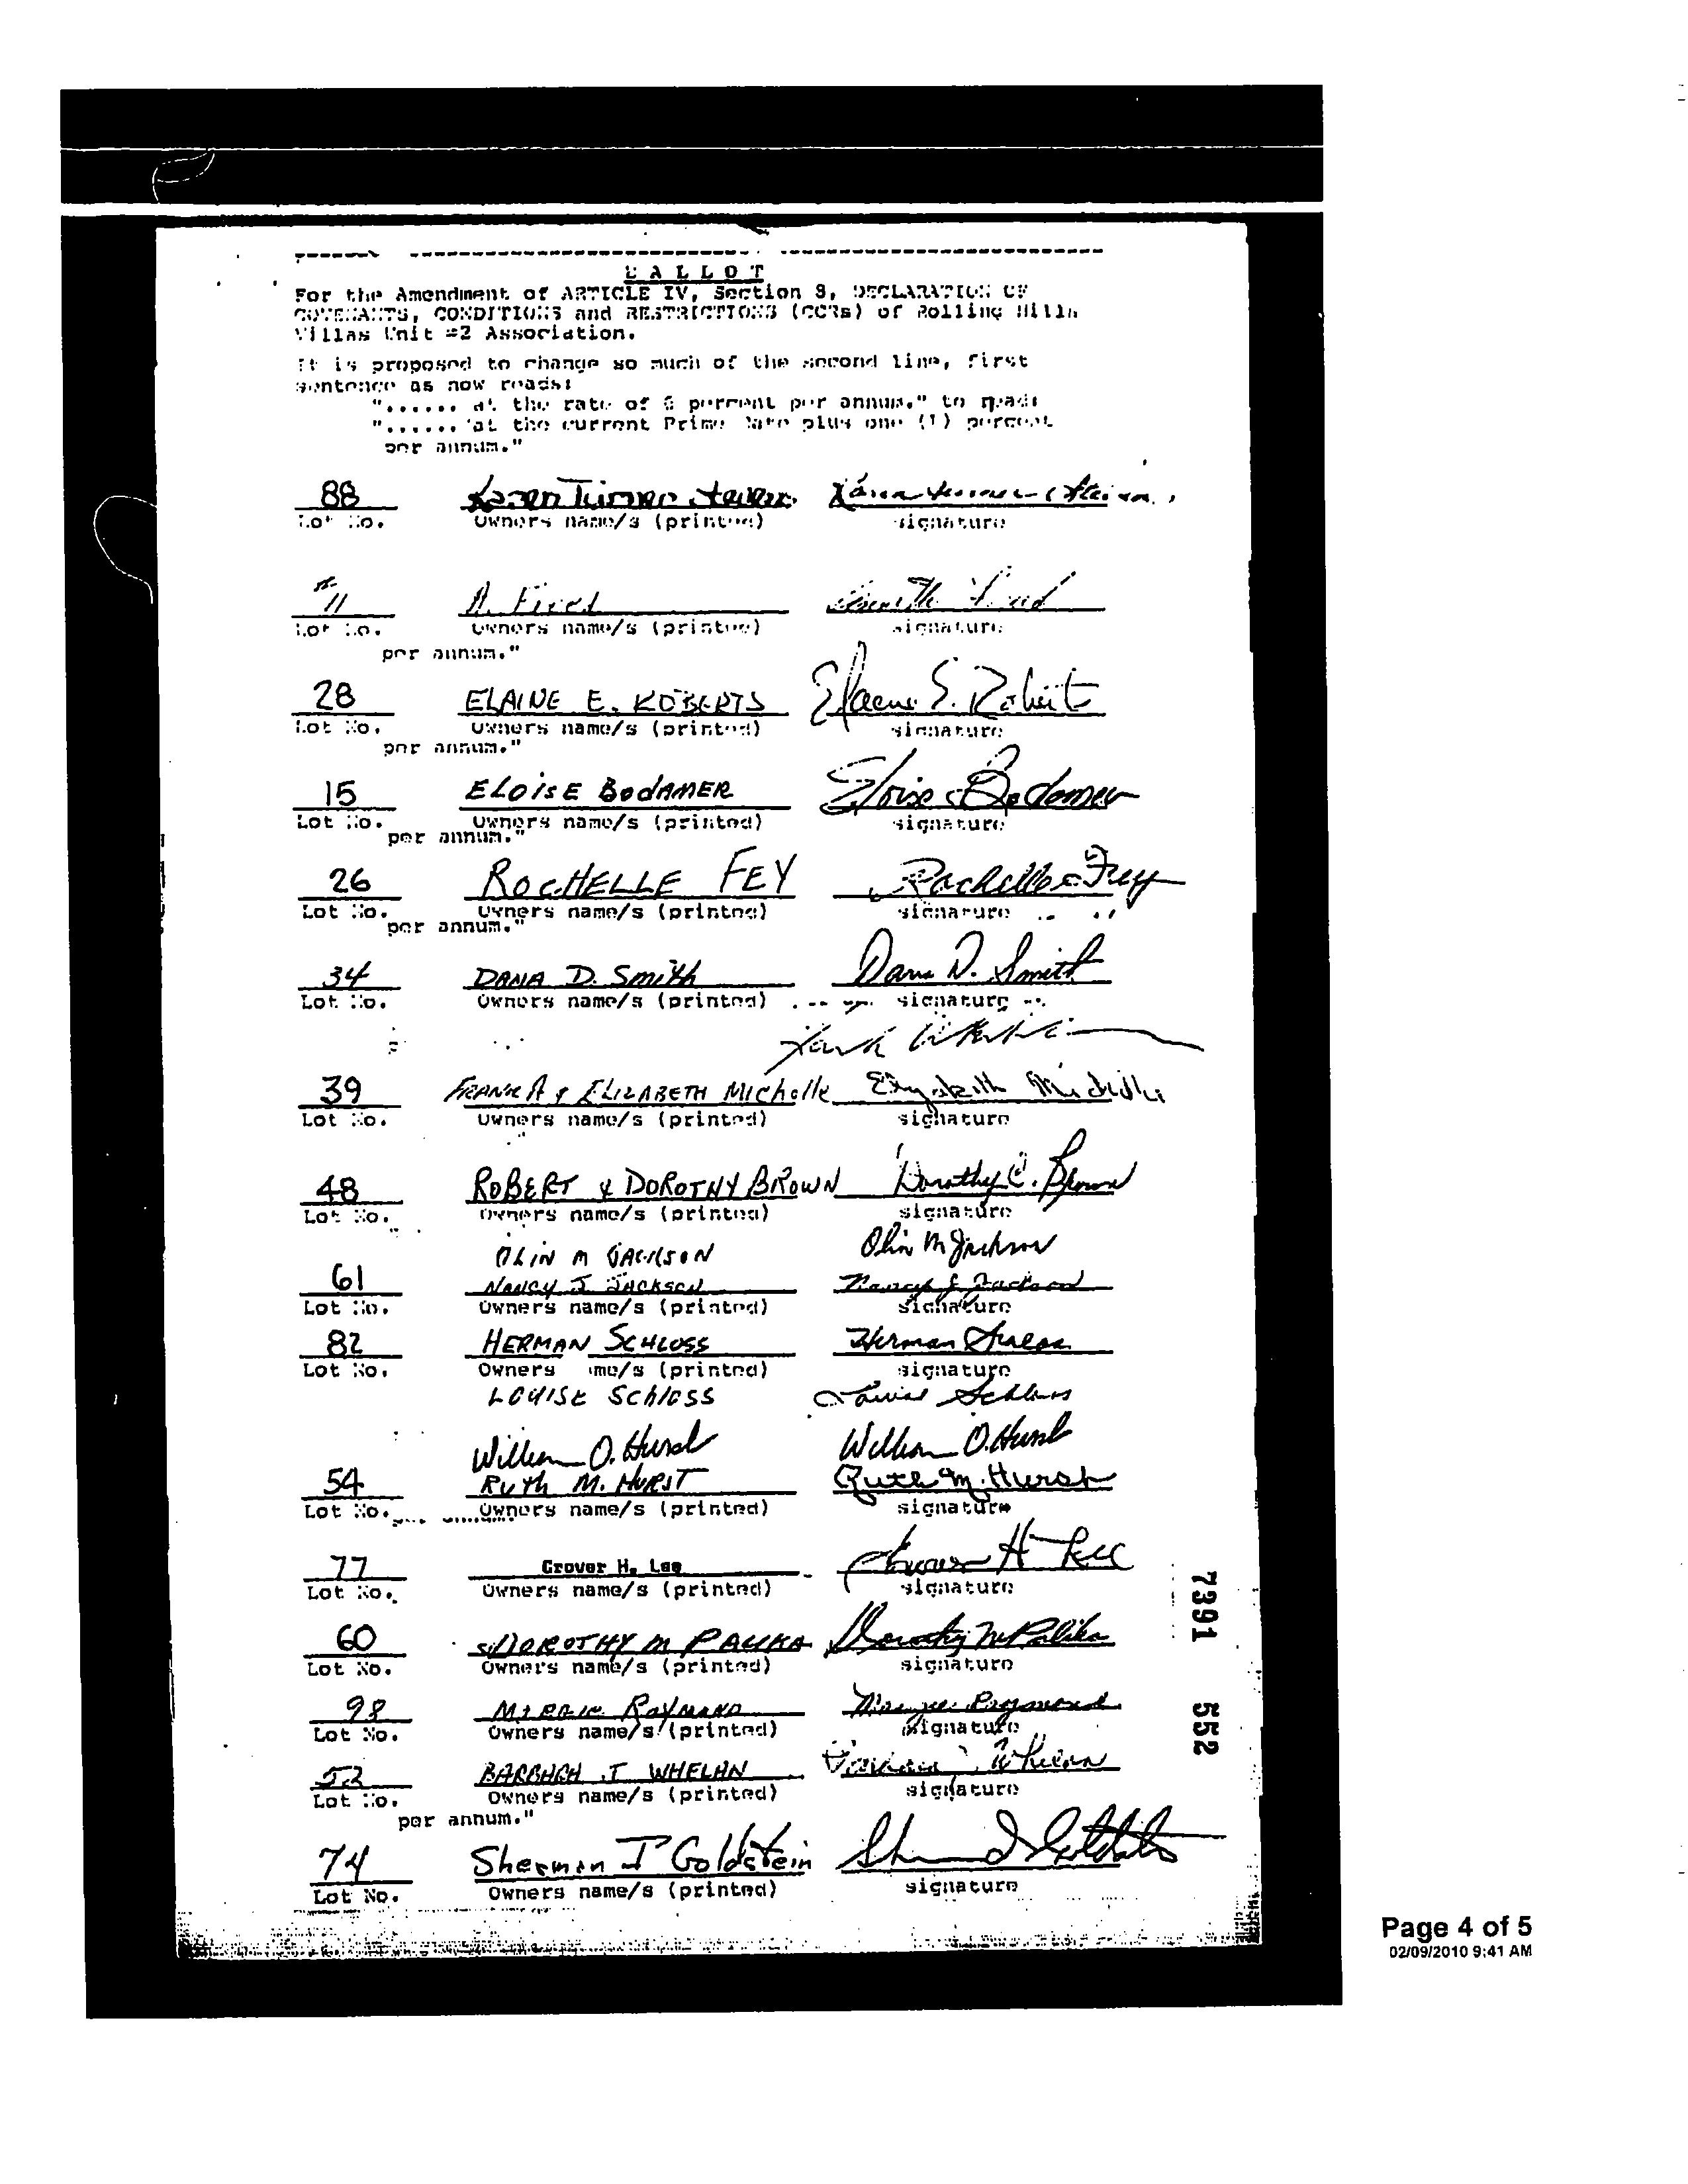 BALLOT
For the Amendment of ARTICLE IV, Section 8, DECLARATION OF
COVENANTS, CONDITIONS and RESTRICTIONS (CCRs) of Rolling Hills
Villas Unit #2 Association.
It is proposed to change so much of the second line, first
sentence as now reads:
"...... at the rate of 6 percent per annum." to read:
"...... at the current Prime Rate plus one (1) percent
per annum."
88 Karen Turner
Lot No. Owners name/s (printed) signature
11
Lot No. Owners name/s (printed) signature
per annum."
28 ELAINE E. ROBERTS Elaine E. Roberts
Lot No. Owners name/s (printed) signature
per annum."
15 ELOISE BODAMER Eloise Bodamer
Lot No. Owners name/s (printed) signature
per annum."
26 ROCHELLE FEY Rochelle Fey
Lot No. Owners name/s (printed) signature
per annum."
34 DANA D. SMITH Dana D. Smith
Lot No. Owners name/s (printed) signature
39 FRANK A & ELIZABETH Michelle Elizabeth
Lot No. Owners name/s (printed) signature
48 ROBERT & DOROTHY BROWN Dorothy C. Brown
Lot No. Owners name/s (printed) signature
OLIN M JACKSON Olin M Jackson
61 NANCY J. JACKSON Nancy J. Jackson
Lot No. Owners name/s (printed) signature
82 HERMAN SCHLOSS Herman Schloss
Lot No. Owners me/s (printed) signature
LOUISE SCHLOSS Louise Schloss
William O. Hurst William O. Hurst
54 RUTH M. HURST Ruth M. Hurst
Lot No. Owners name/s (printed) signature
77 Grover H. Lee Grover H Lee
Lot No. Owners name/s (printed) signature
60 DOROTHY M PALIKA Dorothy M Palika
Lot No. Owners name/s (printed) signature
98 RAYMOND Raymond
Lot No. Owners name/s (printed) signature
52 BARBARA J WHELAN Barbara J Whelan
Lot No. Owners name/s (printed) signature
per annum."
74 Sherman I Goldstein
Lot No. Owners name/s (printed) signature
7391 552
Page 4 of 5
02/09/2010 9:41 AM